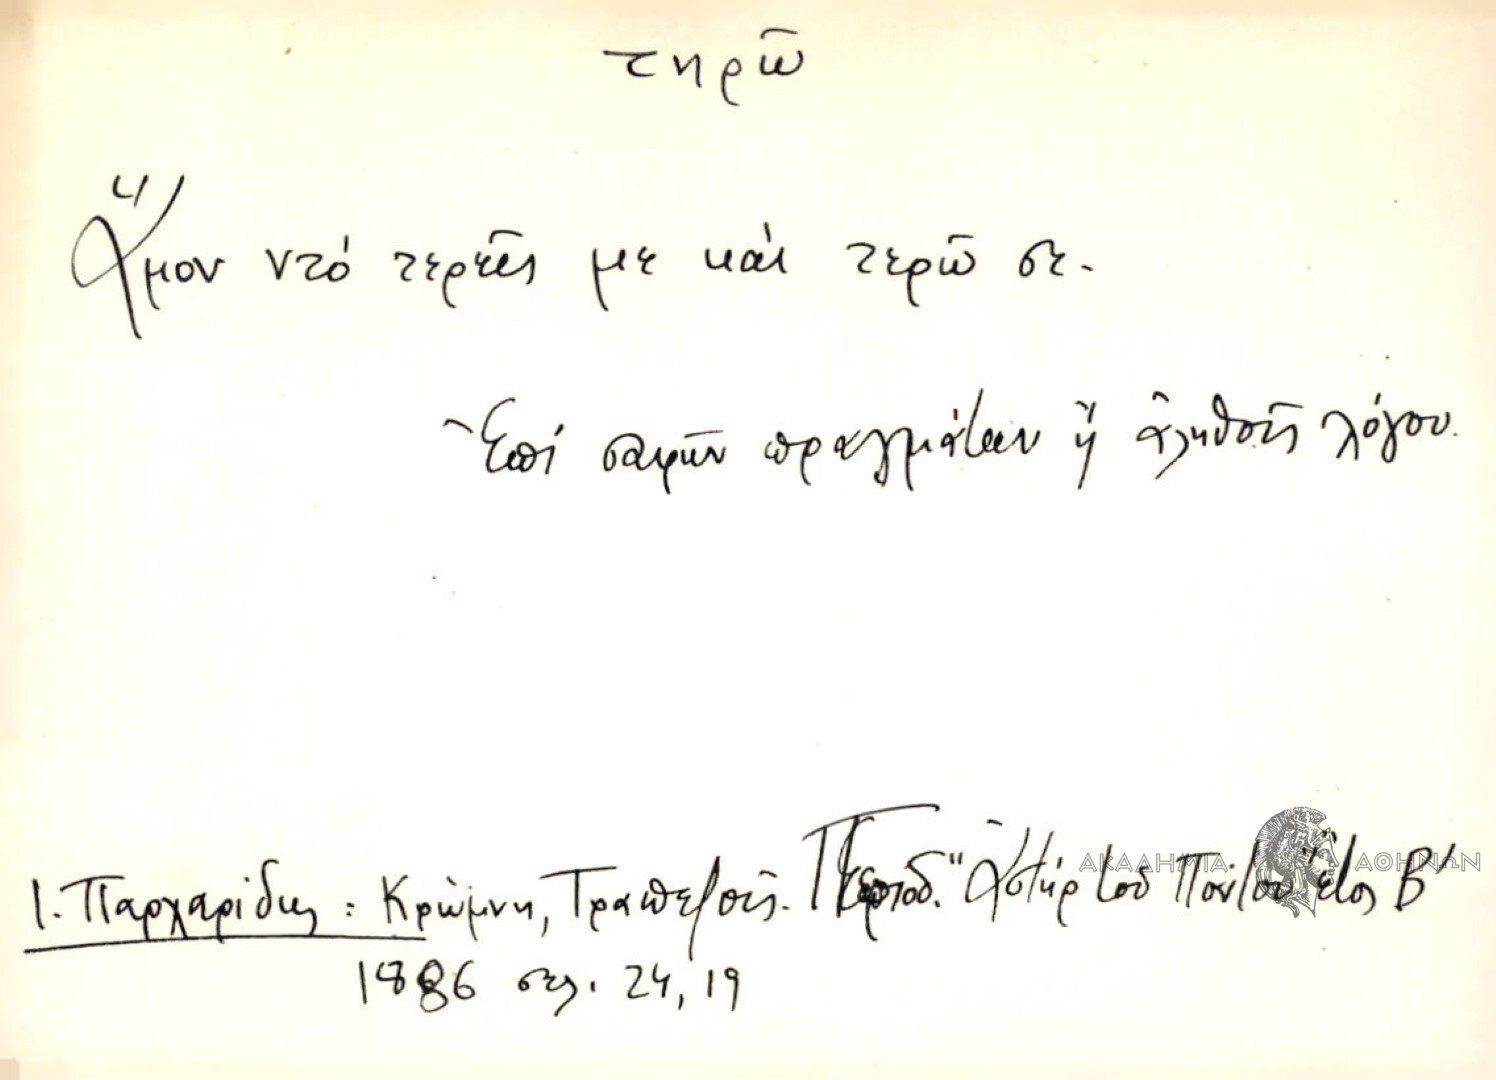 τηρῶ
Ἄμον ντό τερεῖς με καὶ τερῶ σε.
Ἐπί σαφῶν πραγμάτων ἤ ἀληθοῦς λόγου.
Ι. Παρχαρίδης : Κρώμνη, Τραπεζοῦς. Περιοδ. "Ἀστήρ τοῦ Πόντου" ἔτος Β'
1886 σελ. 24, 19
ΑΚΑΔΗΜΙΑ ΑΘΗΝΩΝ